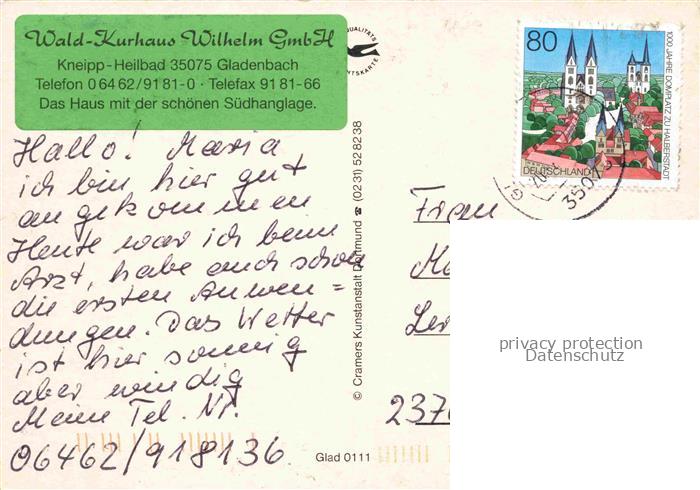 Wald-Kurhaus Wilhelm GmbH
Kneipp-Heilbad 35075 Gladenbach
Telefon 0 64 62 / 91 81-0 · Telefax 91 81-66
Das Haus mit der schönen Südhanglage.
Hallo! Maria
ich bin hier gut
angekommen
Heute war ich beim
Arzt, habe auch schon
die ersten Anwen=
dungen. Das Wetter
ist hier sonnig
aber windig
Meine Tel. Nr.
06462/918136
© Cramers Kunstanstalt Dortmund ☎ (02 31) 52 82 38
Glad 0111
QUALITÄTS
80
DEUTSCHLAND
1000 JAHRE DOMPLATZ ZU HALBERSTADT
35075
Frau
237
privacy protection
Datenschutz